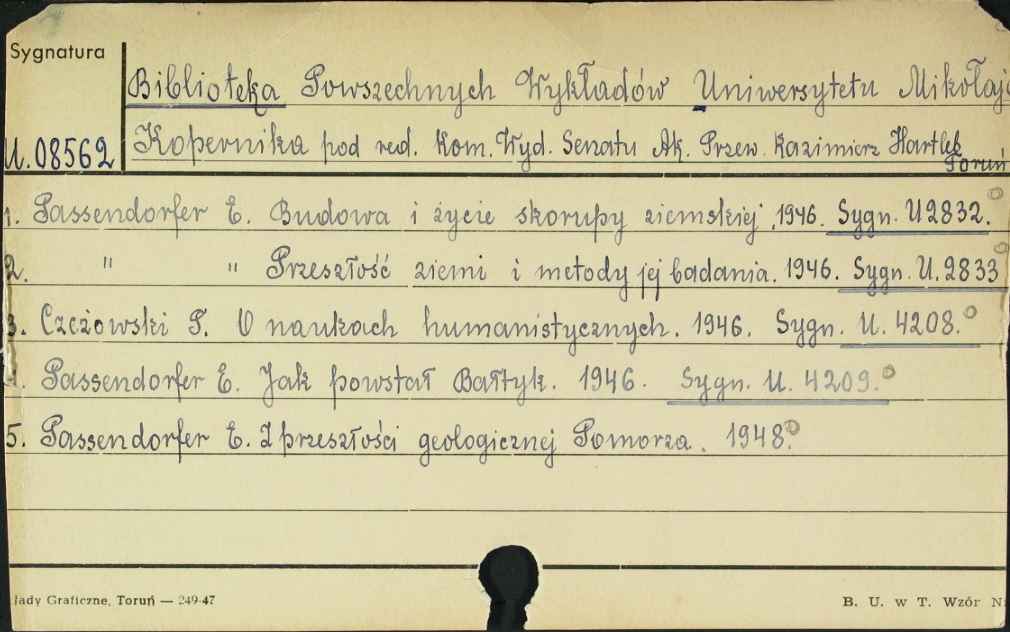 Sygnatura
Biblioteka Powszechnych Wykładów Uniwersytetu Mikołaja
U.08562 Kopernika pod red. Kom. Wyd. Senatu Ak. Przew. Kazimierz Hartleb
Toruń
1. Passendorfer E. Budowa i życie skorupy ziemskiej, 1946. Sygn. U2832.
2. " " Przeszłość ziemi i metody jej badania. 1946. Sygn. U.2833
3. Czeżowski T. O naukach humanistycznych. 1946. Sygn. U. 4208.
4. Passendorfer E. Jak powstał Bałtyk. 1946. Sygn. U. 4209.
5. Passendorfer E. Z przeszłości geologicznej Pomorza. 1948.
łady Graficzne, Toruń — 249-47
B. U. w T. Wzór N